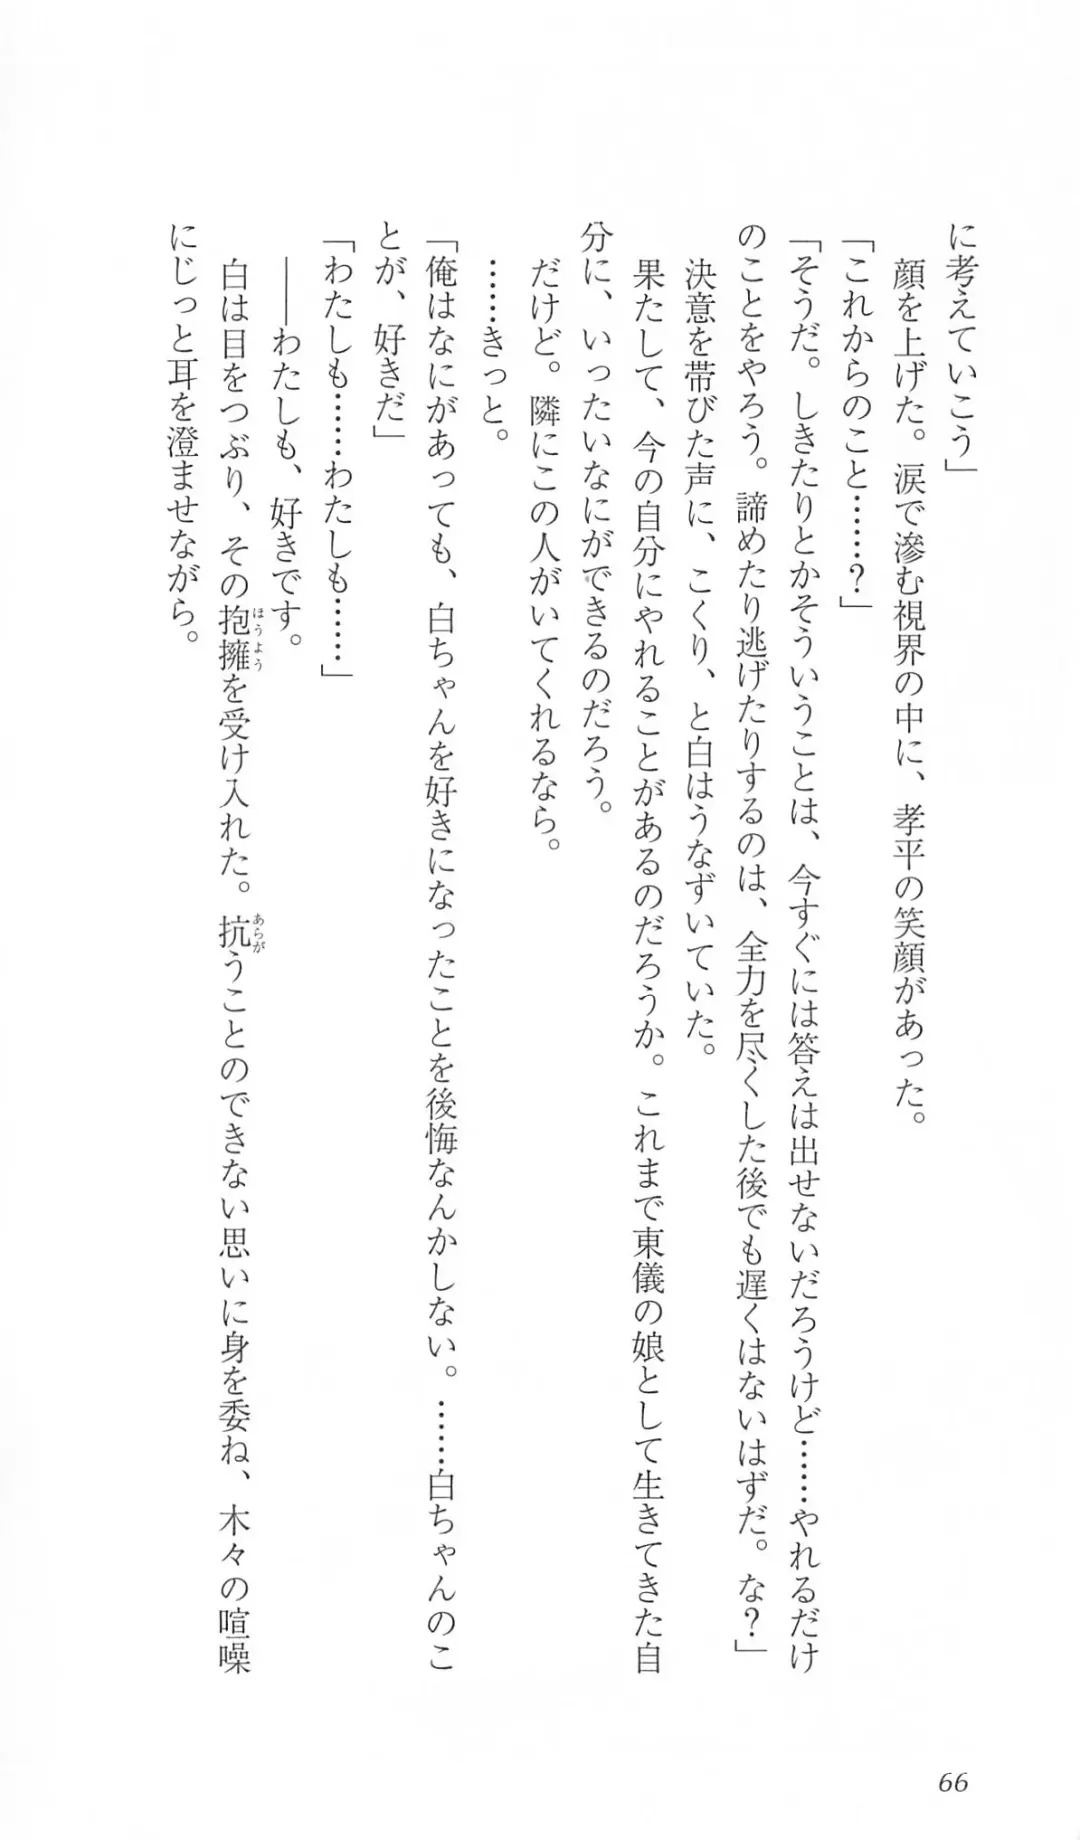 に考えていこう」
顔を上げた。涙で滲む視界の中に、孝平の笑顔があった。
「これからのこと……？」
「そうだ。しきたりとかそういうことは、今すぐには答えは出せないだろうけど……やれるだけ
のことをやろう。諦めたり逃げたりするのは、全力を尽くした後でも遅くはないはずだ。な？」
決意を帯びた声に、こくり、と白はうなずいていた。
果たして、今の自分にやれることがあるのだろうか。これまで東儀の娘として生きてきた自
分に、いったいなにができるのだろう。
だけど。隣にこの人がいてくれるなら。
……きっと。
「俺はなにがあっても、白ちゃんを好きになったことを後悔なんかしない。……白ちゃんのこ
とが、好きだ」
「わたしも……わたしも……」
――わたしも、好きです。
白は目をつぶり、その抱擁ほうようを受け入れた。抗あらがうことのできない思いに身を委ね、木々の喧噪
にじっと耳を澄ませながら。
66